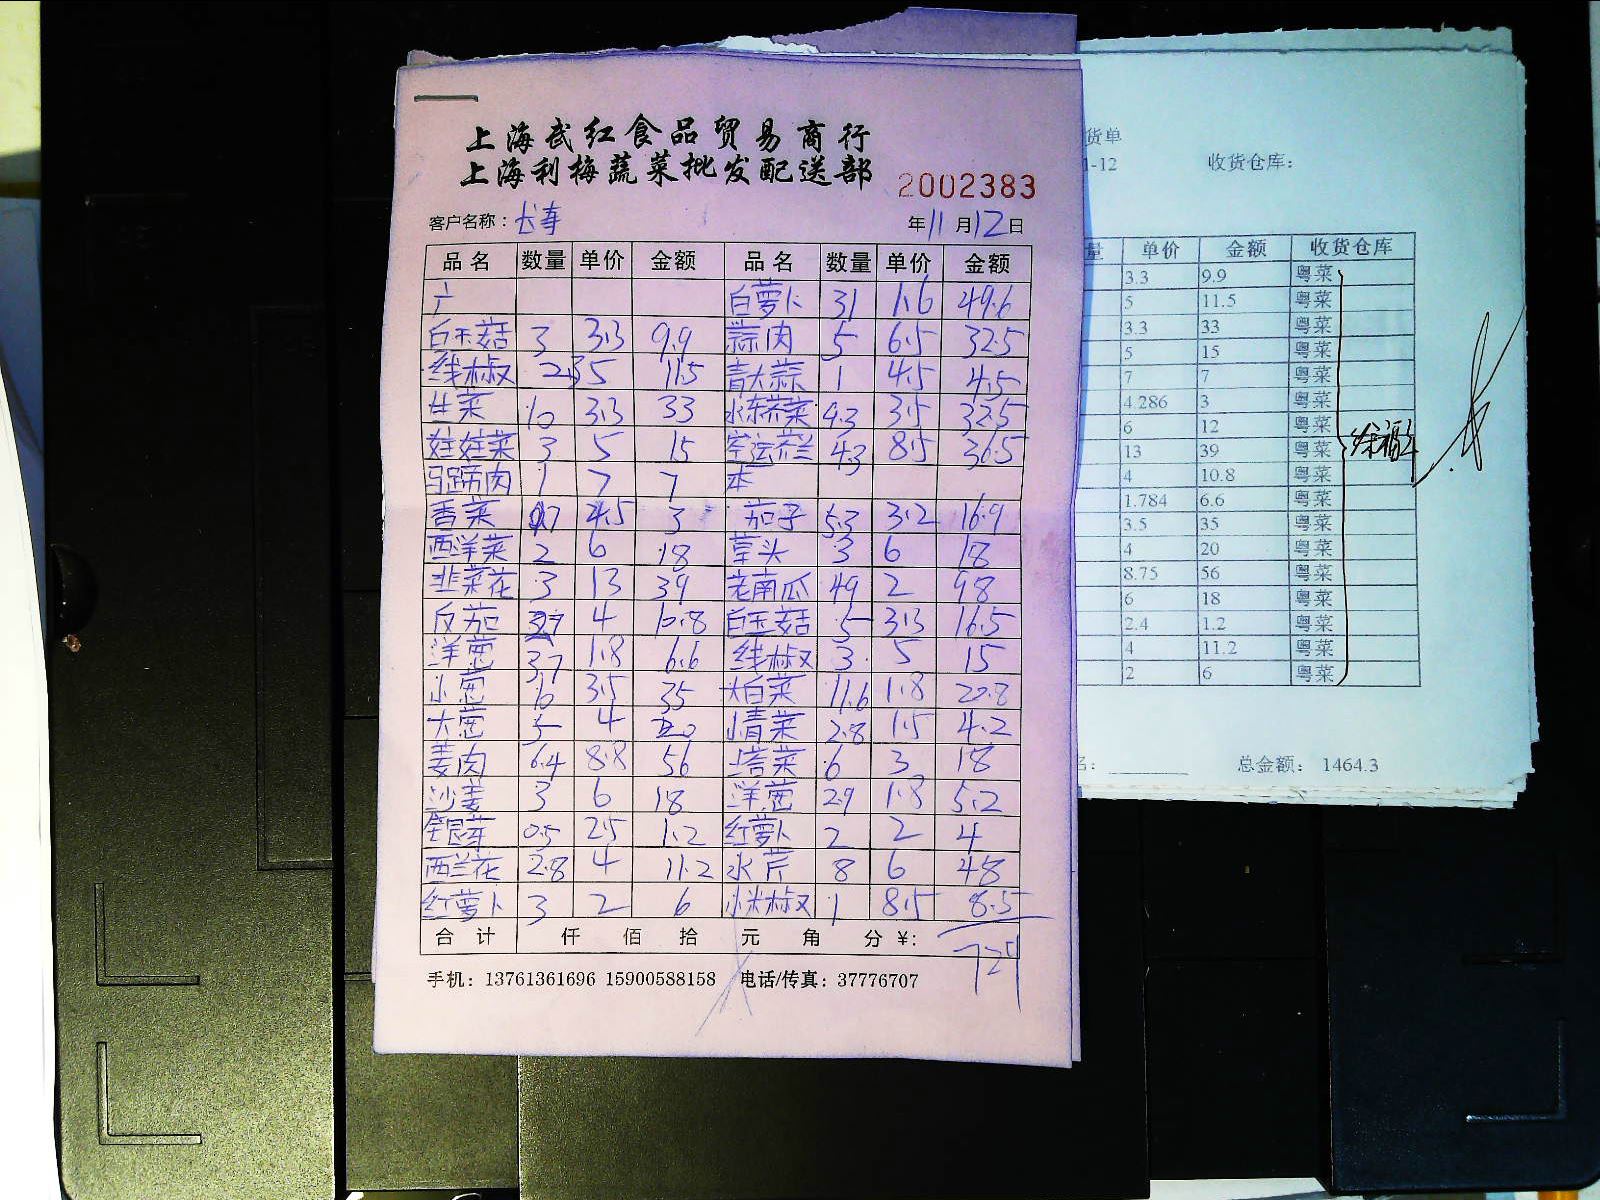 上海武红食品贸易商行
上海利梅蔬菜批发配送部 2002383
客户名称: 年11月12日
品名 数量 单价 金额 品名 数量 单价 金额
广 白萝卜 31 1.6 49.6
白玉菇 3 3.3 9.9 蒜肉 5 6.5 32.5
线椒 2.3 5 11.5 青大蒜 1 4.5 4.5
生菜 10 3.3 33 水东芥菜 9.3 3.5 32.5
娃娃菜 3 5 15 空运芥兰 4.3 8.5 36.5
马蹄肉 1 7 7 本
香菜 0.7 4.5 3 茄子 5.3 3.2 16.9
西洋菜 2 6 18 草头 3 6 18
韭菜花 3 13 39 老南瓜 49 2 98
反茄 2.7 4 10.8 白玉菇 5 3.3 16.5
洋葱 3.7 1.8 6.6 线椒 3 5 15
小葱 10 3.5 35 大白菜 11.6 1.8 20.8
大葱 5 4 20 小青菜 2.8 1.5 4.2
姜肉 6.4 8.8 56 塔菜 6 3 18
沙姜 3 6 18 洋葱 2.9 1.8 5.2
银芽 0.5 2.5 1.2 红萝卜 2 2 4
西兰花 2.8 4 11.2 水芹 8 6 48
红萝卜 3 2 6 小米椒 1 8.5 8.5
合计 仟 佰 拾 元 角 分 ¥: 729
手机: 13761361696 15900588158 电话/传真: 37776707
货单
1-12 收货仓库:
量 单价 金额 收货仓库
3.3 9.9 粤菜
5 11.5 粤菜
3.3 33 粤菜
5 15 粤菜
7 7 粤菜
4.286 3 粤菜
6 12 粤菜
13 39 粤菜
4 10.8 粤菜
1.784 6.6 粤菜
3.5 35 粤菜
4 20 粤菜
8.75 56 粤菜
6 18 粤菜
2.4 1.2 粤菜
4 11.2 粤菜
2 6 粤菜
名: 总金额: 1464.3